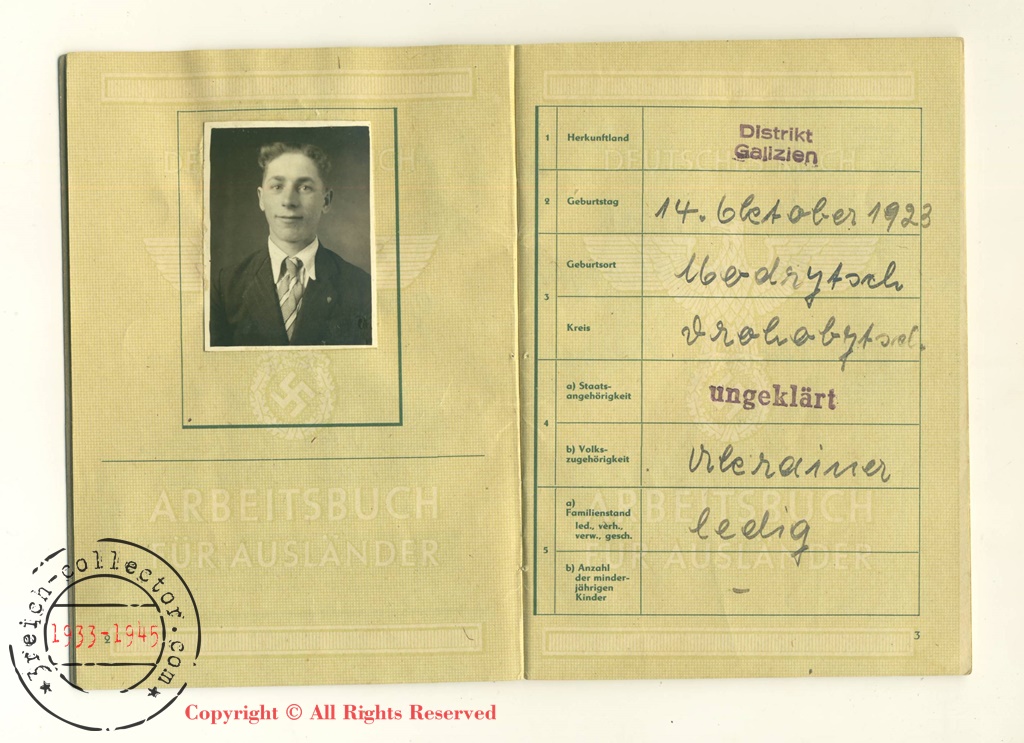 DEUTSCHES REICH
ARBEITSBUCH
FÜR AUSLÄNDER
2
DEUTSCHES REICH
1 Herkunftland Distrikt
Galizien
2 Geburtstag 14. Oktober 1923
3 Geburtsort Modrytsch
Kreis Drohobytsch.
4 a) Staats-
angehörigkeit ungeklärt
b) Volks-
zugehörigkeit Ukrainer
5 a)
Familienstand
led., verh.,
verw., gesch. ledig
b) Anzahl
der minder-
jährigen
Kinder -
ARBEITSBUCH
FÜR AUSLÄNDER
3
3reich-collector.com
1933-1945
Copyright © All Rights Reserved